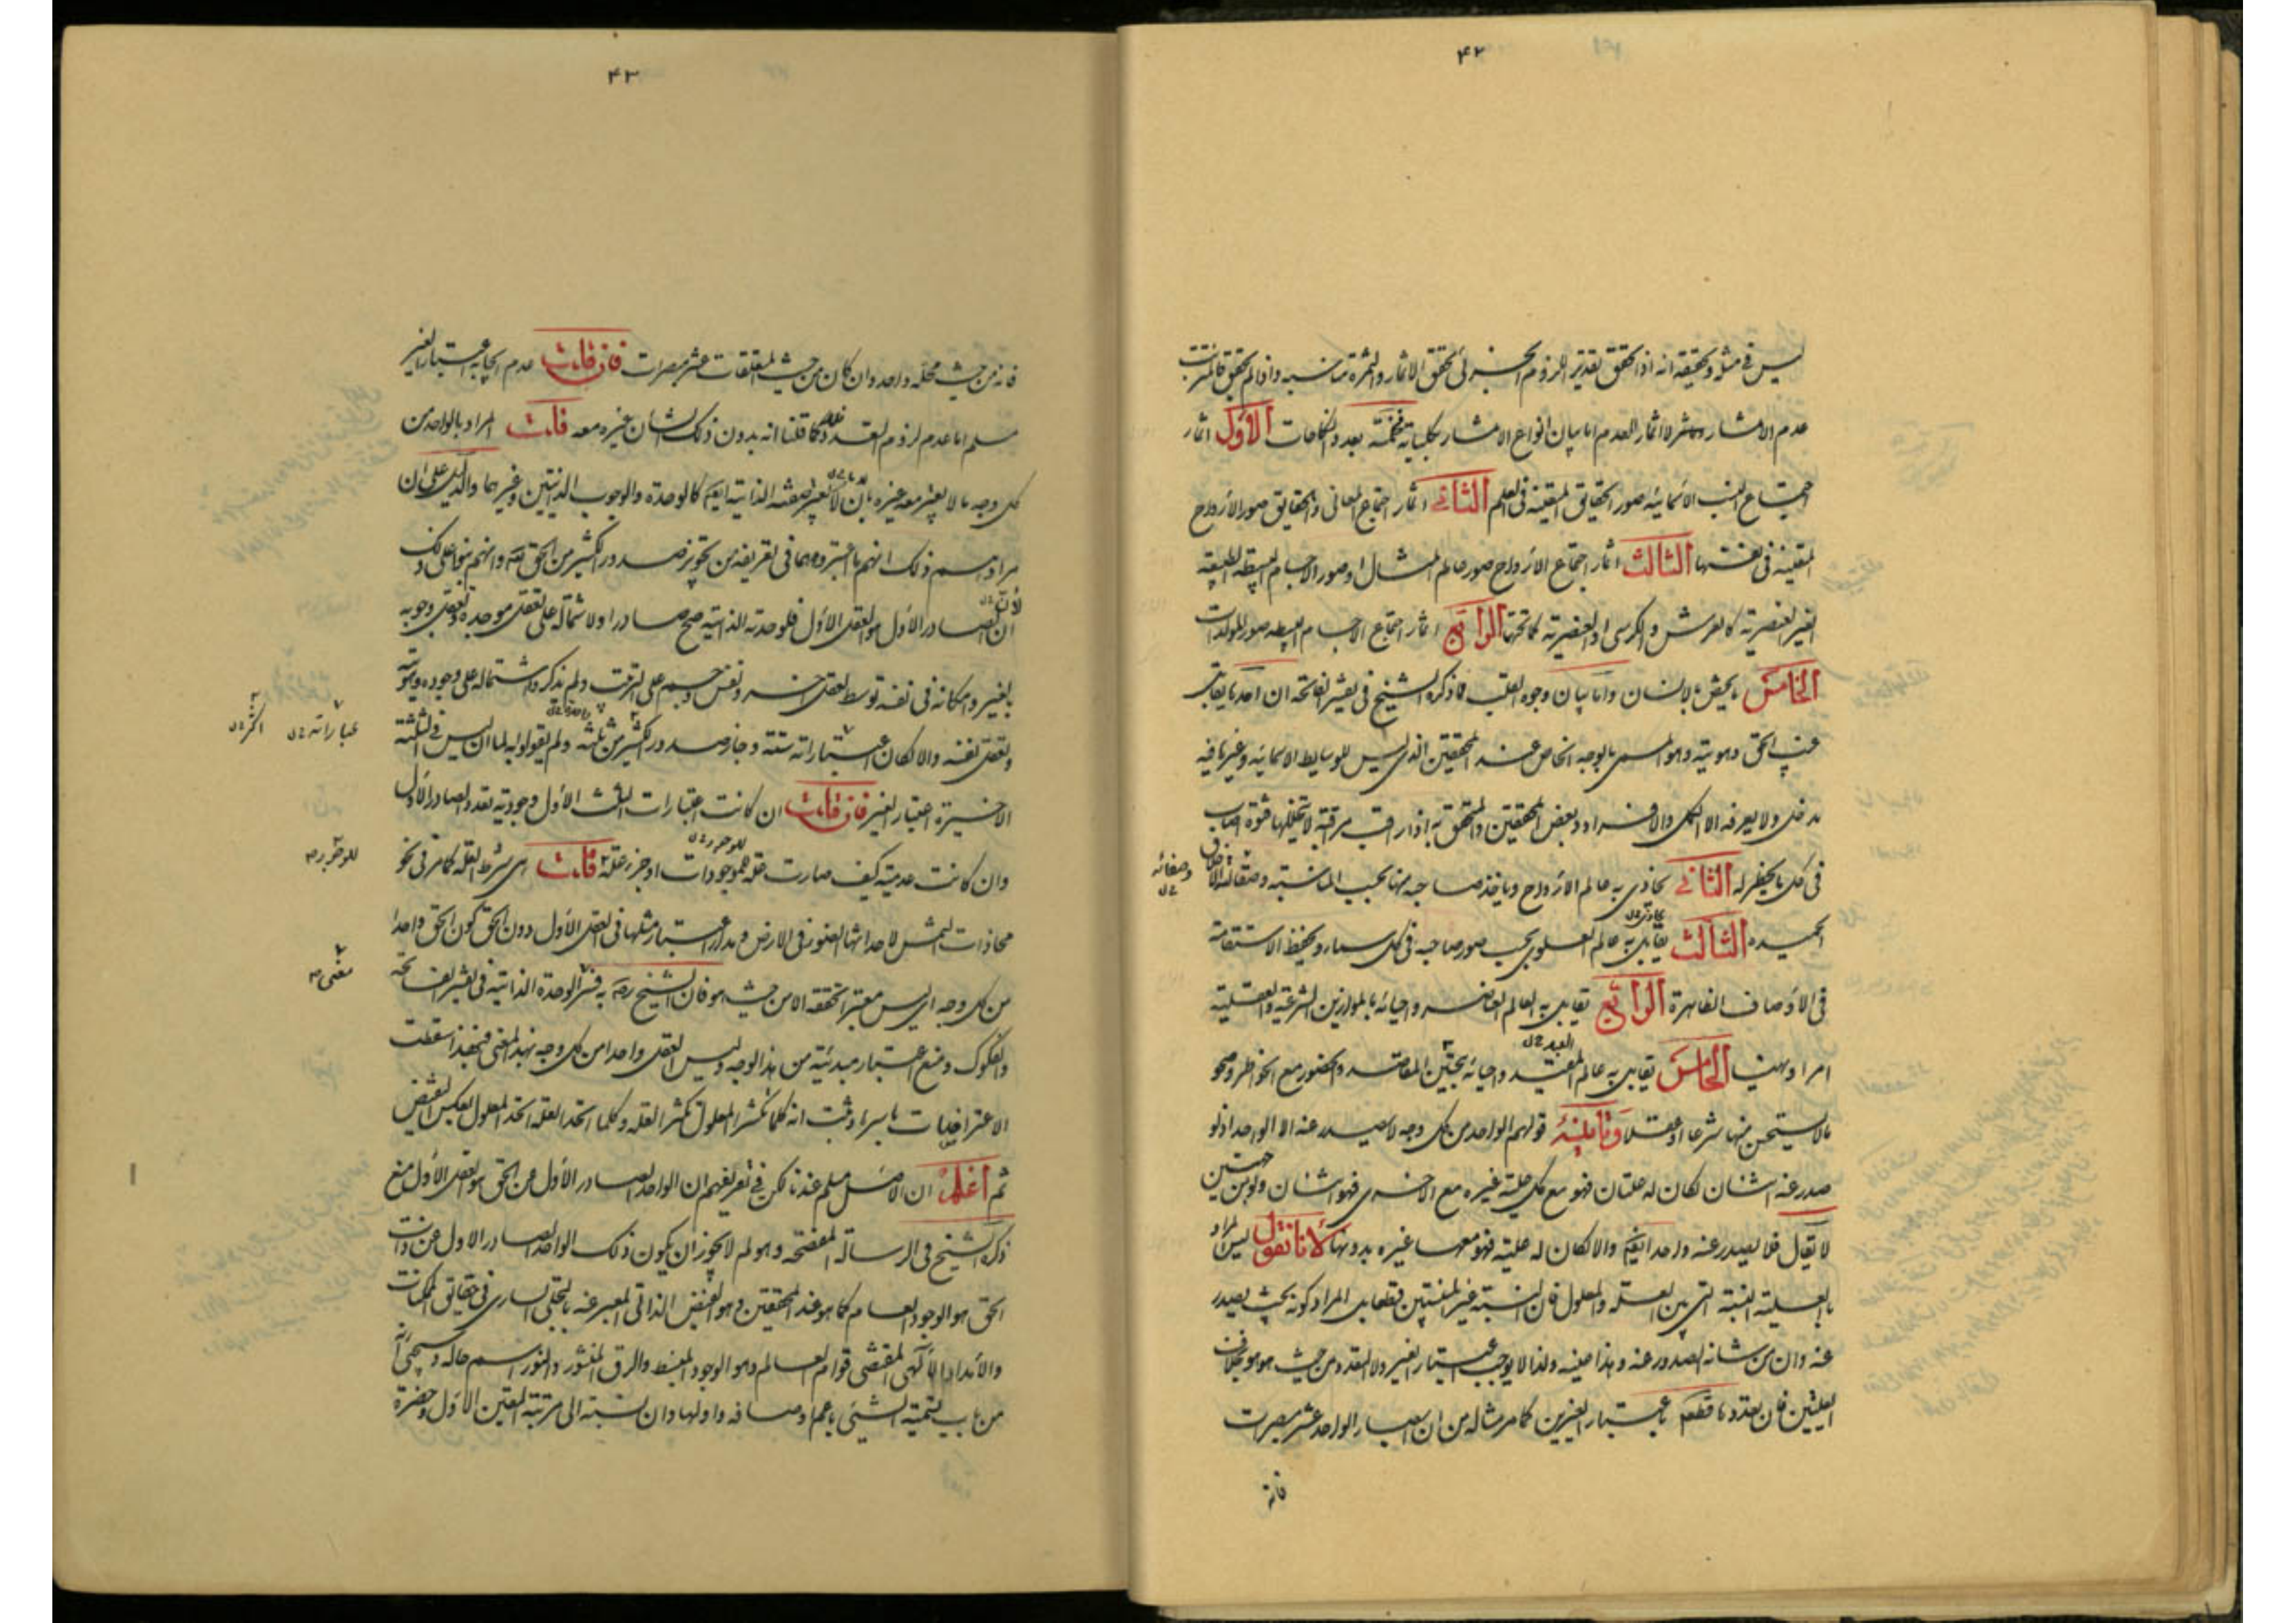 ۴۲
ليس في مثله وتحقيقه انه اذا تحقق تقدير اللزوم الجزئى تحقق الاثمار والثمرة مناسبة واذا لم يتحقق فالمترتب
عدم الاثمار لا اثمار العدم اما بيان انواع الاثمار بكلياته فخمسة بعدد النكاحات الأول اثمار
اجتماع النسب الأسمائية صور الحقايق المتعينة فى العلم الثاني اثمار اجتماع المعانى والحقايق صور الأرواح
المتعينة فى نفسها الثالث اثمار اجتماع الأرواح صور عالم المثال او صور الاجسام البسيطة الطبيعية
الغير العنصرية كالعرش والكرسى او العنصرية كما تحتها الرابع اثمار اجتماع الاجسام البسيطة صور المولدات
الخامس ما يختص بالانسان واما بيان وجوه القلب فما ذكره الشيخ فى تفسير الفاتحة ان احدها يقابل
غيب الحق وهويته وهو المسمى بالوجه الخاص عند المحققين الذى ليس للوسايط الاسمائية وغيرها فيه
مدخل ولا يعرفه الا الكمل والافراد وبعض المحققين والمتحقق به اذا راقب مراقبة لا يتخللها فترة اصاب
فى كل ما يخطر له الثاني يحاذى به عالم الأرواح وياخذ صاحبه منها بحسب المناسبة وصقالة الأخلاق
وصفائه
الحميدة الثالث يقابل به عالم العلوى بحسب صور صاحبه فى كل سماء ويحفظ الاستقامة
فى الأوصاف الظاهرة الرابع يقابل به العالم العناصر واحيائه بالموازين الشرعية والعقلية
امرا ونهيا الخامس يقابل به عالم المقيد واحيائه بتحسين المقاصد والحضور مع الخواطر ومحو
ما لا يستحسن منها شرعا او عقلا وثامنه قولهم الواحد من كل وجه لا يصدر عنه الا الواحد اذ لو
صدر عنه اثنان لكان له علتان فهو مع كل علية غيره مع الاخرى فهو اثنان ولو من جهتين
لا يقال فلا يصدر عنه واحد ايضا والا لكان له علية فهو معها غيره بدونها لأنا نقول ليس المراد
بالعلية النسبة التى بين العلة والمعلول فان النسبة غير المنتسبين قطعا بل المراد كونه بحيث يصدر
عنه وان من شانه الصدور عنه وهذا عينه ولذا لا يوجب اعتبار الغير ولا التعدد من حيث هو هو بخلاف
العليتين فان تعددها قطعا باعتبار الغيرين كما مر مثاله من ان ابصار الواحد عشر مبصرات
فانه
۴۳
فانه من حيث محله واحد وان كان من حيث المتعلقات عشر مبصرات فان قلت عدم ايجابه اعتبار الغير
مسلم اما عدم لزوم التعدد فلا كما قلنا انه بدون ذلك الشان غيره معه قلت المراد بالواحد من
كل وجه ما لا يعتبر معه غيره بان لا يعتبر صفته الذاتية ايضا كالوحدة والوجوب الذاتيين وغيرهما والدليل على ان
مرادهم ذلك انهم ما اعتبروهما فى تعريفه من تجويز صدور الكثير من الحق تعالى وانهم بنوا على ذلك
ان الصادر الأول هو العقل الأول فلوحدته الذاتية صح صادرا ولاشتماله على تعقل موجده وتعقل وجوبه
بالغير وامكانه فى نفسه توسط لعقل اخر ونفس وجسم على الترتيب ولم يذكروا اشتماله على وجوده وهويته
وتعقل نفسه والا لكان اعتباراته ستة وجاز صدور الكثير من ثلثة ولم يقولوا به لما ان ليس فى الثلثة
عباراته
اكثر
الاخيرة اعتبار الغير فان قلت ان كانت اعتبارات الثلث الأول وجودية تعدد الصادر الأول
وان كانت عدمية كيف صارت علة للموجودات او جزء علة قلت هى شرط العلة كما مر فى نحو
محاذات الشمس لاحداثها الضوء فى الارض ومدار اعتبار مثلها فى العقل الأول دون الحق كون الحق واحدا
من كل وجه اى ليس معتبرا تحققه الا من حيث هو فان الشيخ ره به فسر الوحدة الذاتية فى تفسير الفاتحة
والفكوك ومنع اعتبار مبدئيته من هذا الوجه وليس العقل واحدا من كل وجه بهذا المعنى فبهذا سقطت
الاعتراضات باسرها وثبت انه كلما تكثر المعلول تكثر العلة وكلما اتحد العلة اتحد المعلول بعكس النقيض
ثم اعلم ان الاصل مسلم عندنا لكن فى تعريفهم ان الواحد الصادر الأول من الحق هو العقل الأول منع
ذكره الشيخ فى الرسالة المفصحة وهو لم لا يجوز ان يكون ذلك الواحد الصادر الاول عن ذات
الحق هو الوجود العام كما هو عند المحققين وهو الفيض الذاتى المعبر عنه بالتجلى السارى فى حقايق الممكنات
والأمداد الألهى المقتضى قوام العالم وهو الوجود المنبسط والرق المنشور والنور اسم حاله وسيجئ انه
من باب تسمية الشئ باعم اوصافه واولها وان نسبته الى مرتبة التعين الأول وحضرة